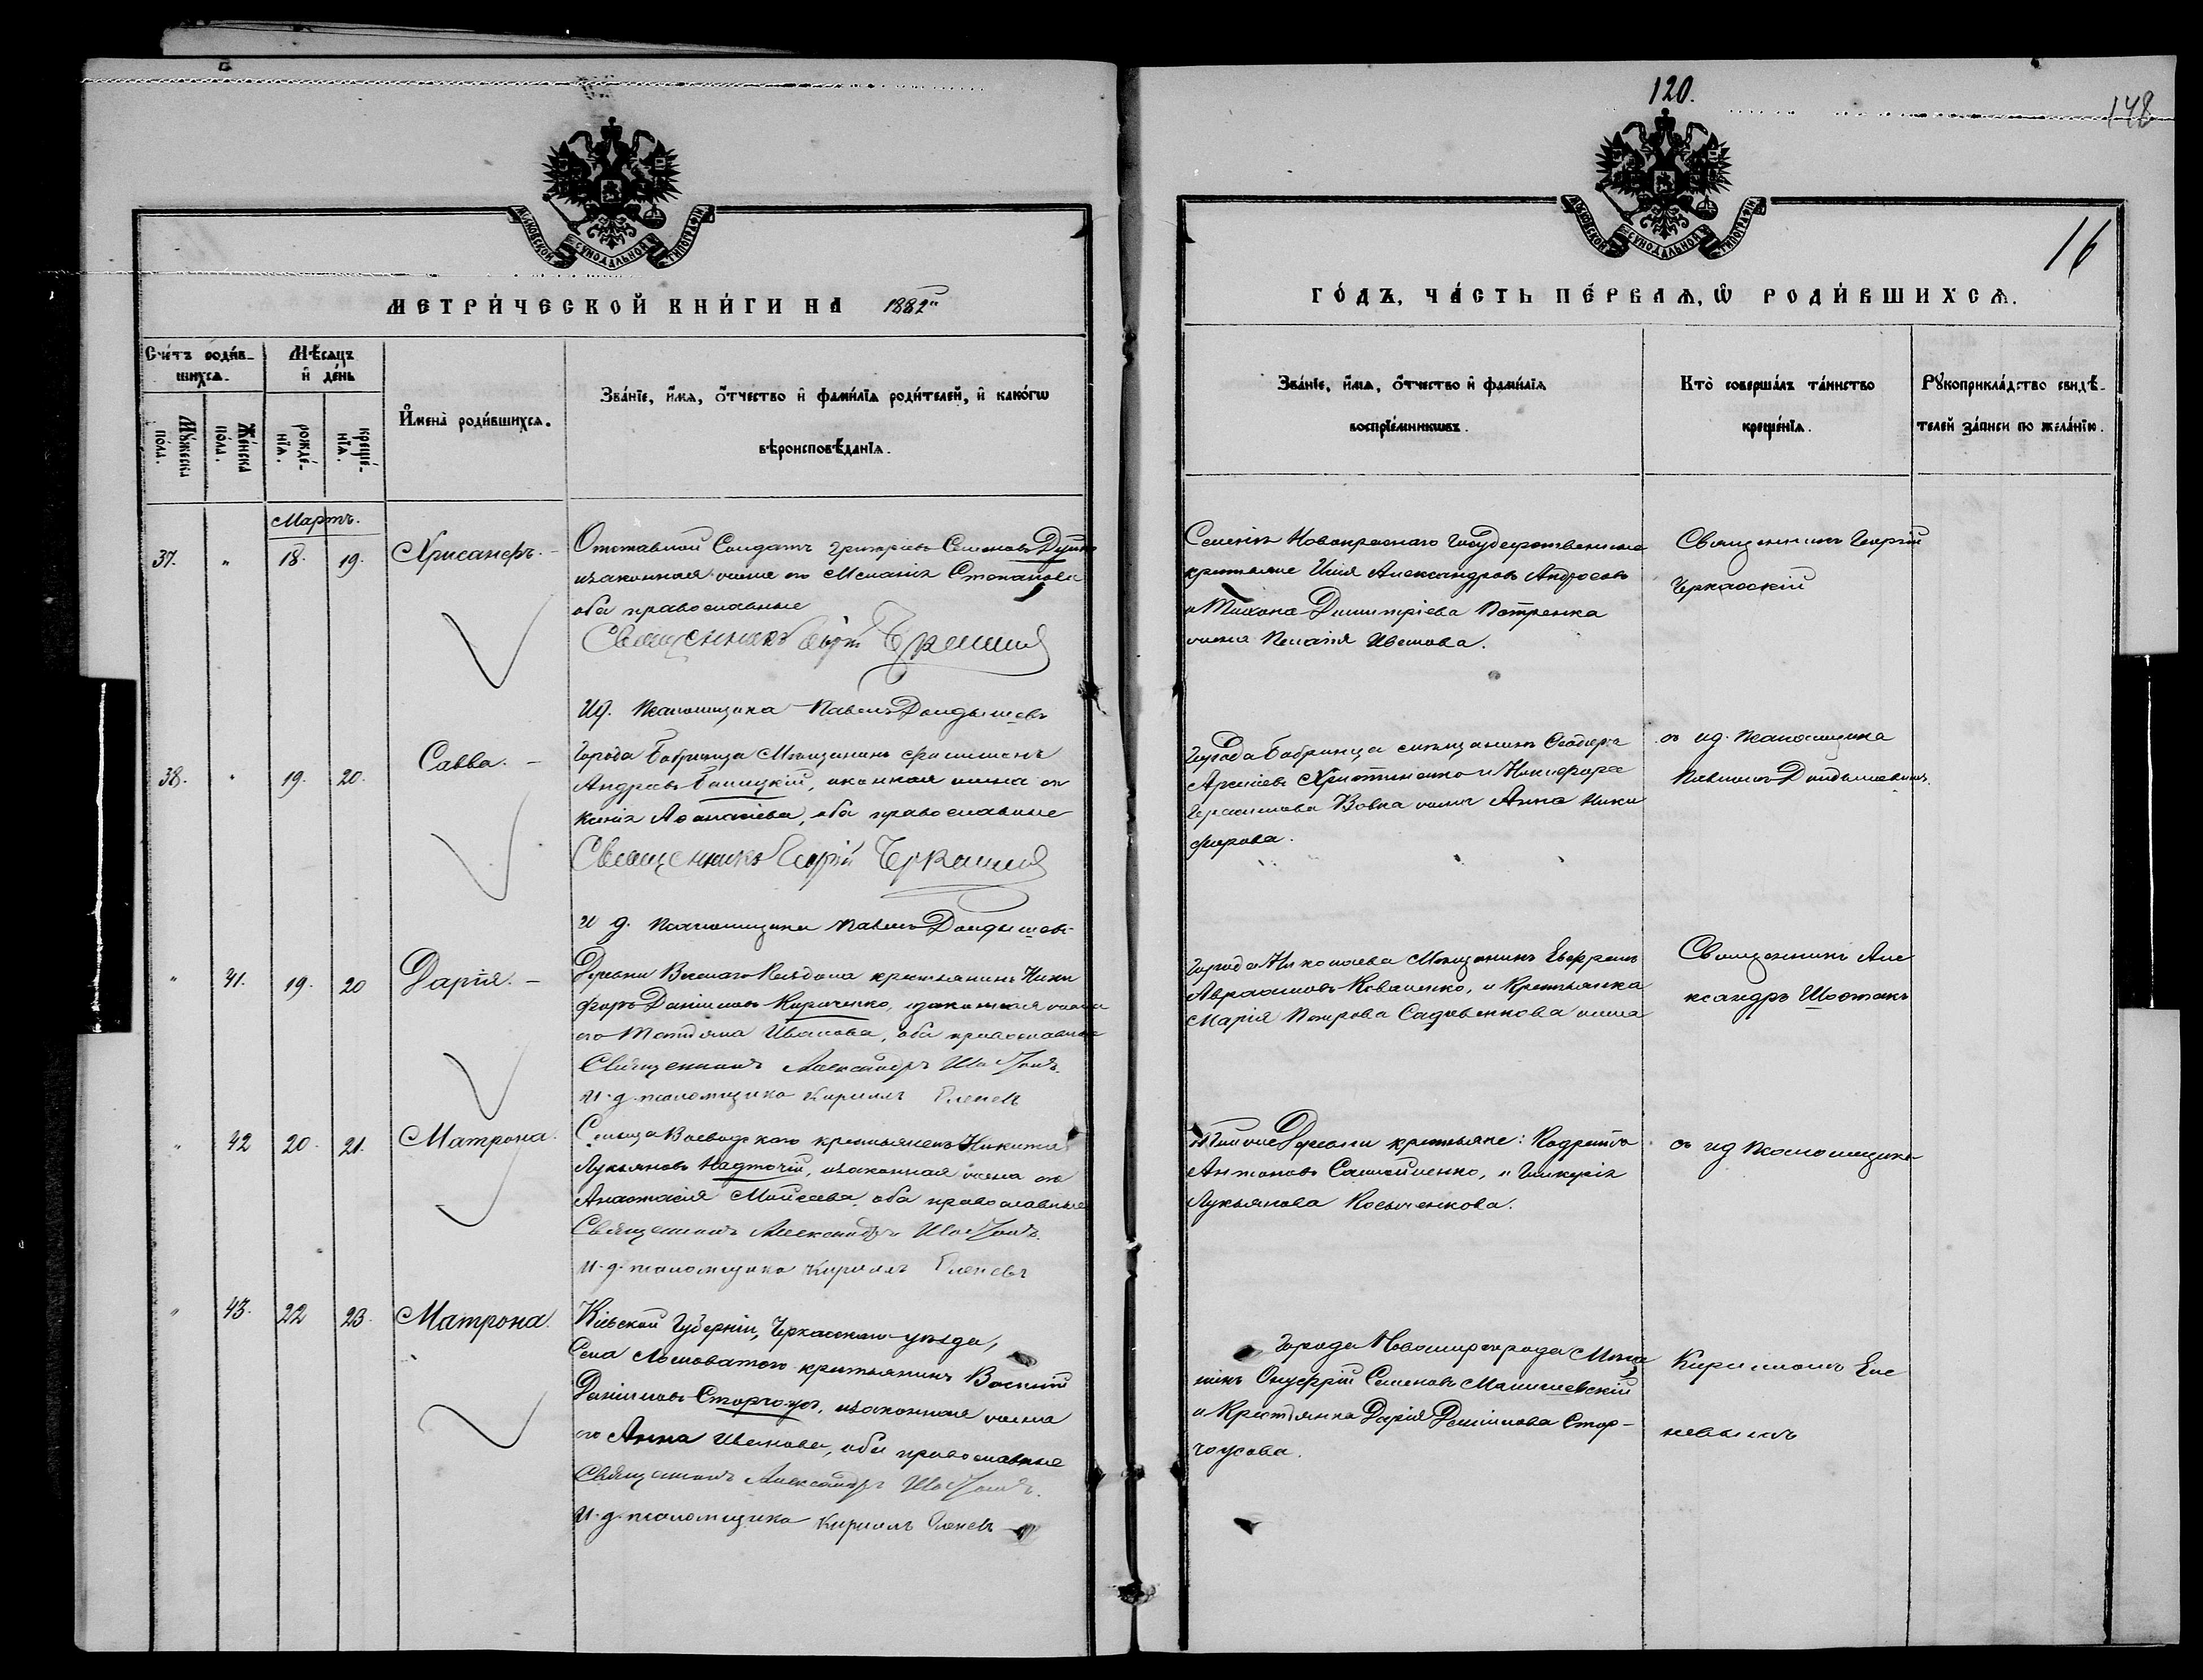 120.
148
16
МОСКОВСКОЙ СѴНОДАЛЬНОЙ ТИПОГРАФІИ
МОСКОВСКОЙ СѴНОДАЛЬНОЙ ТИПОГРАФІИ
МЕТРИ́ЧЕСКОЙ КНИ́ГИ НА 1882й
ГО́ДЪ, ЧА́СТЬ ПЕ́РВАѦ, Ѡ҆ РОДИ́ВШИХСѦ.
Сче́тъ роди́в-
шихсѧ.
Мѣ́сѧцъ
и҆ де́нь
Мꙋ́жеска
по́ла.
Же́нска
по́ла.
рожде́-
нїѧ.
креще́-
нїѧ.
И҆мена̀ роди́вшихсѧ.
Зва́нїе, и҆́мѧ, ѻ҆́тчество и҆ фами́лїѧ роди́телей, и҆ како́гѡ
вѣроисповѣ́данїѧ.
Зва́нїе, и҆́мѧ, ѻ҆́тчество и҆ фами́лїѧ
воспрїе́мникѡвъ.
Кто̀ соверша́лъ та́инство
креще́нїѧ.
Рꙋкоприкла́дство свидѣ́-
телей за́писи по жела́нїю.
Мартъ.
37. " 18. 19. Хрисанфъ. –
Отставной Солдатъ Григорій Семеновъ
изаконная жена его Меланія Степанова
оба православные
Священникъ Георгій Черкасскій
И д. Псаломщика Павелъ Дондышевъ
Селенія Новокраснаго Государственные
крестьяне Илія Александровъ Андросовъ
и Тихона Димитріева Петренка
жена Пелагія Иванова.
Священникъ Георгій
Черкасскій
38. " 19. 20. Савва. –
Города Бобринца Мѣщанинъ Филимонъ
Андреевъ законная жена его
Ксенія Аѳанасіева, оба православные
Священникъ Георгій Черкасскій
И д. Псаломщика Павелъ Дондышевъ
Города Бобринца мѣщанинъ Ѳеодоръ
Арсеніевъ Христиненко и Никифора
Герасимова Вовка жена Анна Ники
форова.
съ ид. Псаломщика
Павломъ Дондышевымъ
" 41. 19. 20 Дарія. –
Деревни крестьянинъ Ники
форъ Даніиловъ Кириченко, изаконная жена
его Татіяна Иванова, оба православные
Священникъ Александръ Шостакъ.
И. д. псаломщика Кириллъ Еленевъ
Города Николаева Мѣщанинъ Ефремъ
Авраамовъ Коваленко, и Крестьянка
Марія Петрова Садовенкова
Священникъ Але
ксандръ Шостакъ
" 42 20. 21. Матрона.
Селища Воеводскаго крестьянинъ Никита
Лукьяновъ Надточій, изаконная жена его
Анастасія Моисеева, оба православные
Священникъ Александръ Шостакъ.
И. д. псаломщика Кириллъ Еленевъ
Деревни крестьяне:
Антоновъ Самойленко, и Гликерія
Лукьянова Косыченкова.
съ ид Псаломщика
" 43. 22 23. Матрона.
Кіевской Губерніи, Черкасскаго уѣзда,
Села Ломоватого крестьянинъ Василій
Даніиловъ Сторчоусъ, изаконная жена
его Анна Иванова, оба православные
Священникъ Александръ Шостакъ.
И. д. псаломщика Кириллъ Еленевъ
Города Новомиргорода Мѣща
нинъ Онуфрій Семеновъ Малишевскій
и Крестьянка Дарія Даніилова Стор-
чоусова.
Кирилломъ Еле
невымъ